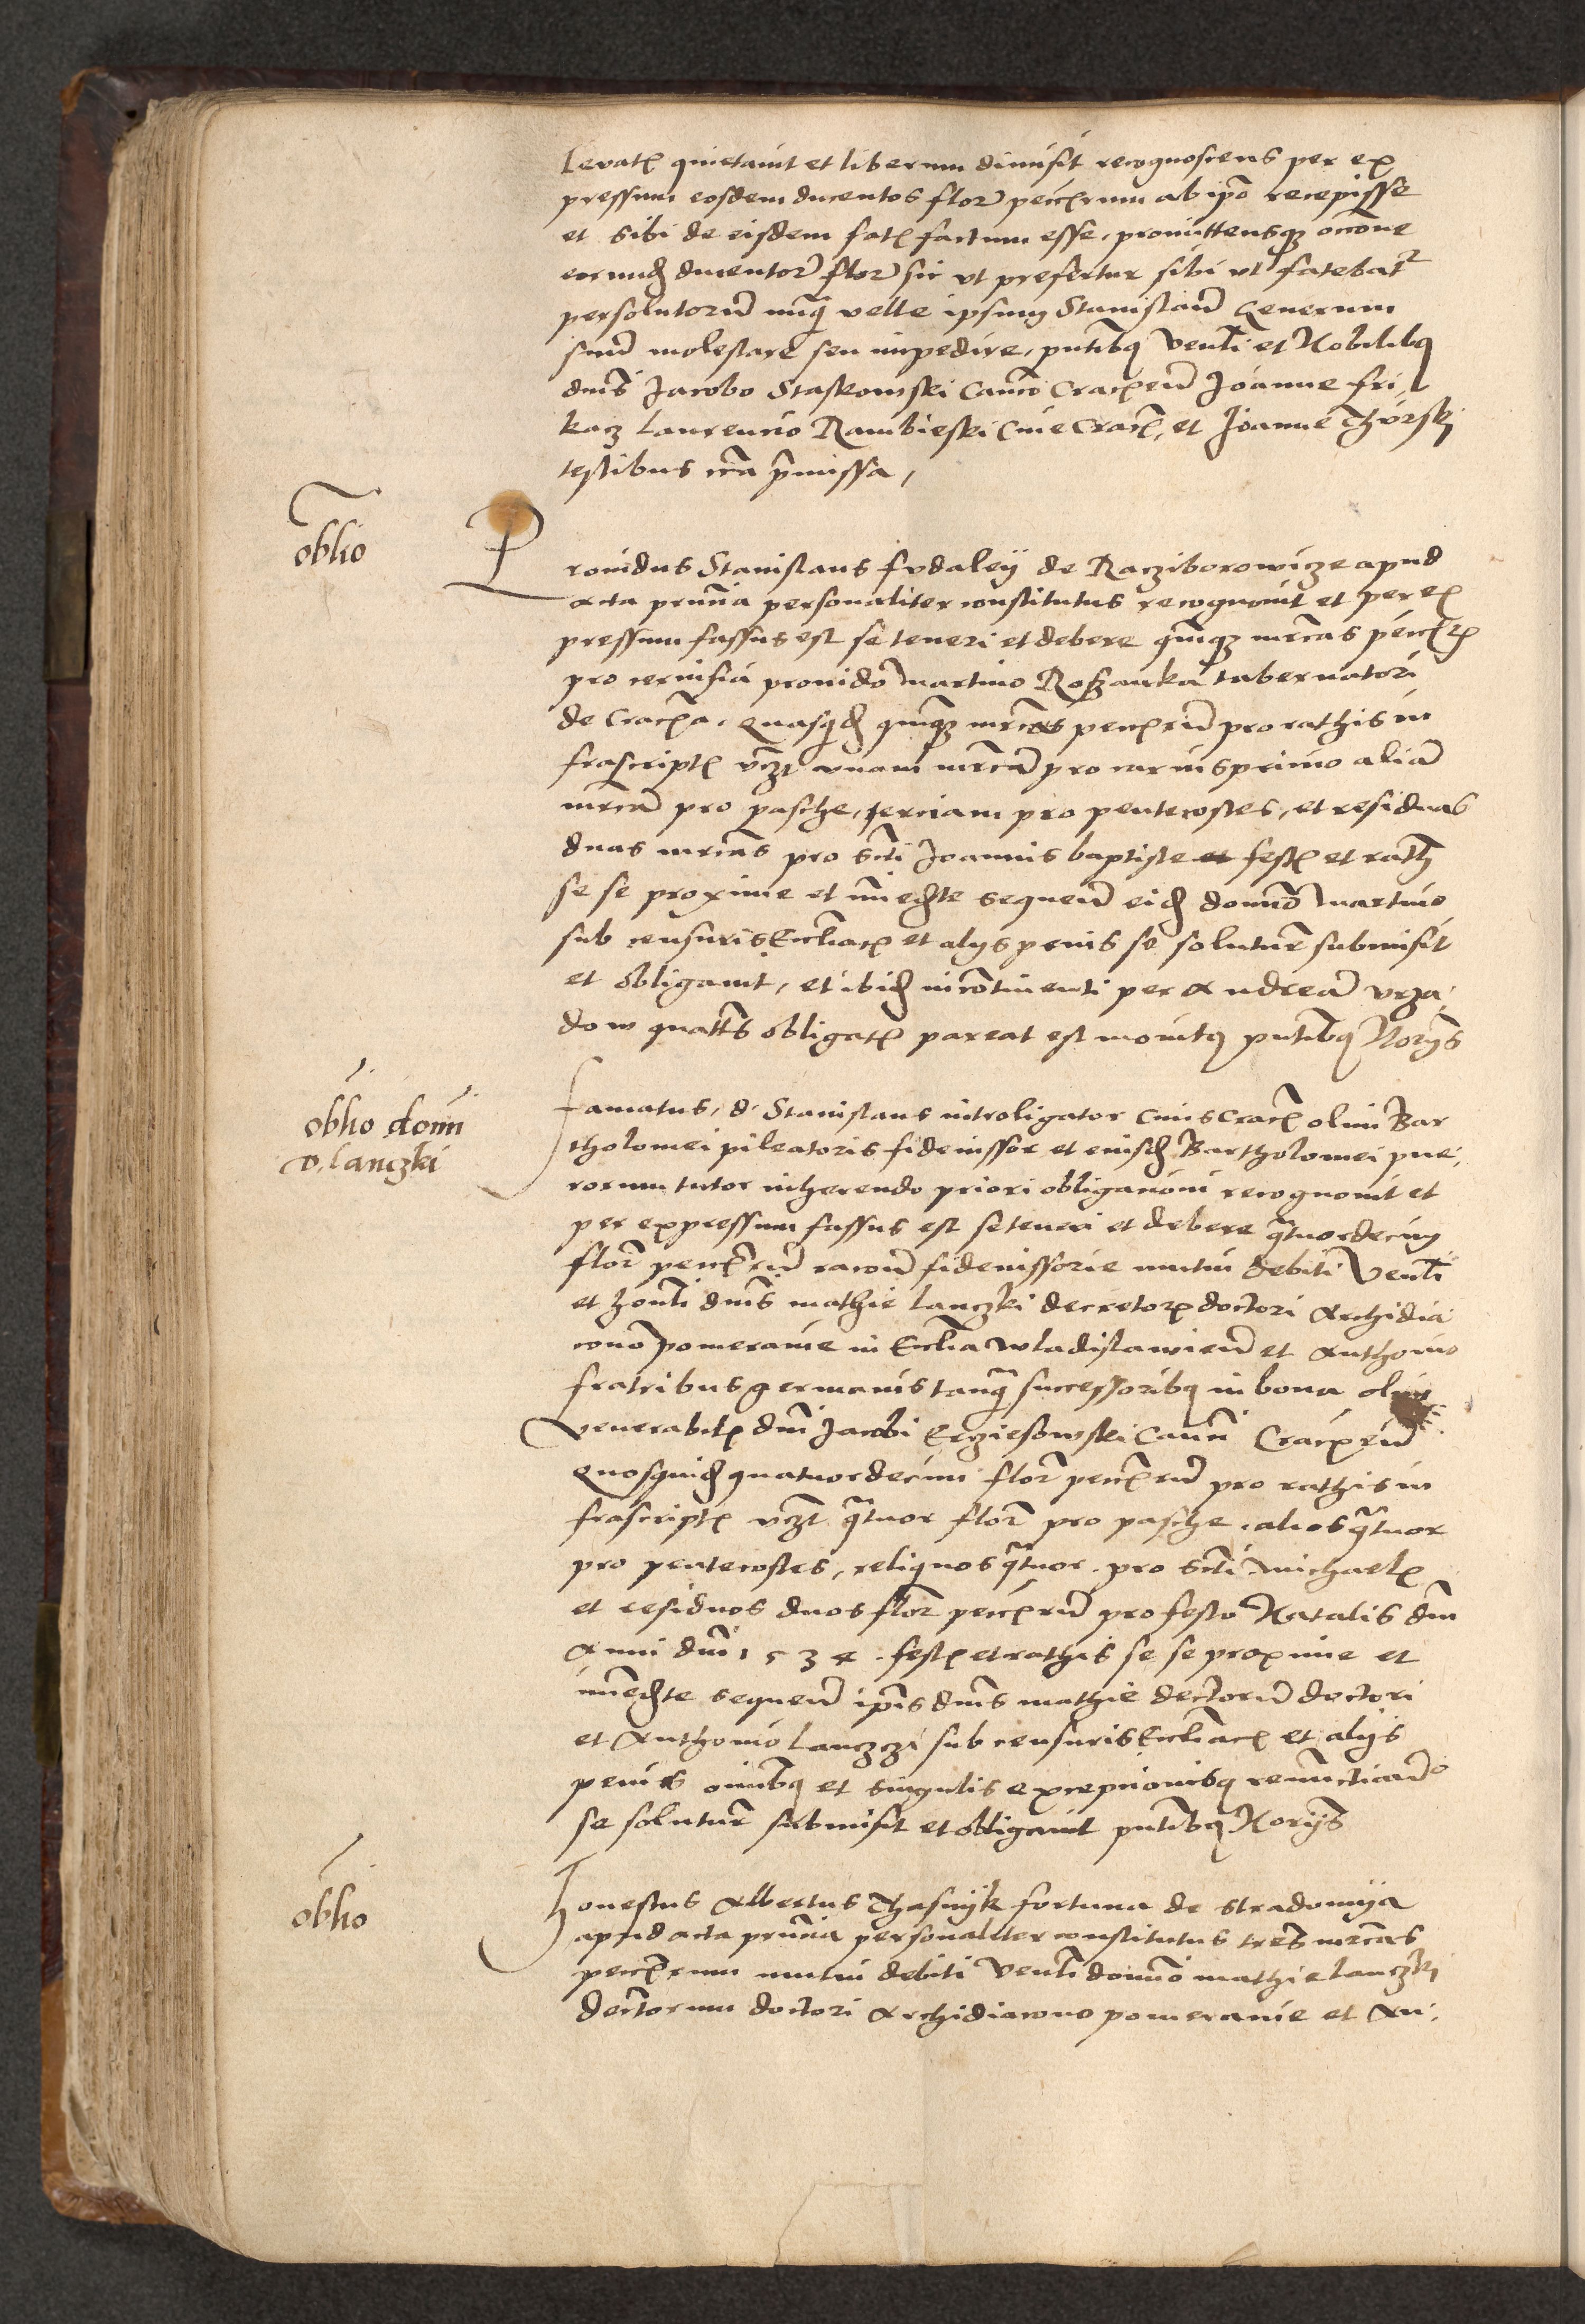 levat quietavit et liberum dimisit recognoscens per ex
pressum eosdem ducentos flor peccrum ab ipso recepisse
et sibi de eisdem satis factum esse, promittensque occone
eorund ducentor flor sic ut prefertur sibi ut fatebat
persolutorum nunq velle ipsum Stanislaum generum
suum molestare seu impedire, pntibq Venli et Nobilibq
dnis Jacobo Staskowski Canco Cracovien Joanne Fri
kacz Laurencio Rambieski Cive Crac, et Joanne Thurski
testibus circa pmissa,
oblio
Providus Stanislaus Fudaleÿ de Racziborowicze apud
Acta pnncia personaliter constitutus recognovit et per ex
pressum fassus est se teneri et debere quinq mrcas
pro cervisia provido Martino Roszanka tabernatori
de Cracovia, Quasquid quinq mrcas peccrum pro rathis in
frascript vczt unam mrcam pro carnisprivio aliam
mrcam pro pasche, terciam pro pentecostes, et residuas
duas mrcas pro Scti Joannis baptiste fest et rath
se se proxime et immediate sequen eid domino Martino
sub censuris Ecclesiac et alys penis se solutur submisit
et obligavit, et ibid incontinenti per Andream Urza
dow quatts obligat pareat est monitq pntibq Norijs
oblio domi
D. Lanczki
Famatus, d. Stanislaus introligator Civis Crac olim Bar
tholomei pileatoris fideiussor et eiusd Bartholomei pue,
rorum tutor inherendo priori obligacioni recognovit et
per expressum fassus est se teneri et debere qtuordecim
flor peccrum racione fideiussorie mutui debiti Venli
et honli dnis Mathie Lanczki decretor doctori Archidia
cono pomeranie in Ecclia Wladislawien et Anthonio
fratribus germanis tanq successoribq in bona olim
venerabilis dni Jacobi Erziesowski Canci Cracovien
Quosquid quatuordecim flor peccrum pro rathis in
frascript vczt qtuor flor pro pasche, alios qtuor
pro pentecostes, reliquos qtuor pro Scti Michael
et residuos duos flor peccrum pro festo Natalis dni
Anni dni 1534. fest et rathis se se proxime et
immediate sequen ipis dnis Mathie dectorum doctori
et Anthonio Lanczki sub censuris Ecclesiac et alijs
penis omibq et singulis excepcionibq renuncciando
se solutur submisit et obligavit pntibq Norijs
oblio
Honestus Albertus Thasnijk fortuna de Stradomija
apud acta pnncia personaliter constitutus tres mrcas
peccrum mutui debiti Venli domino Mathie Lanczki
dectorum doctori Archidiacono pomeranie et An,